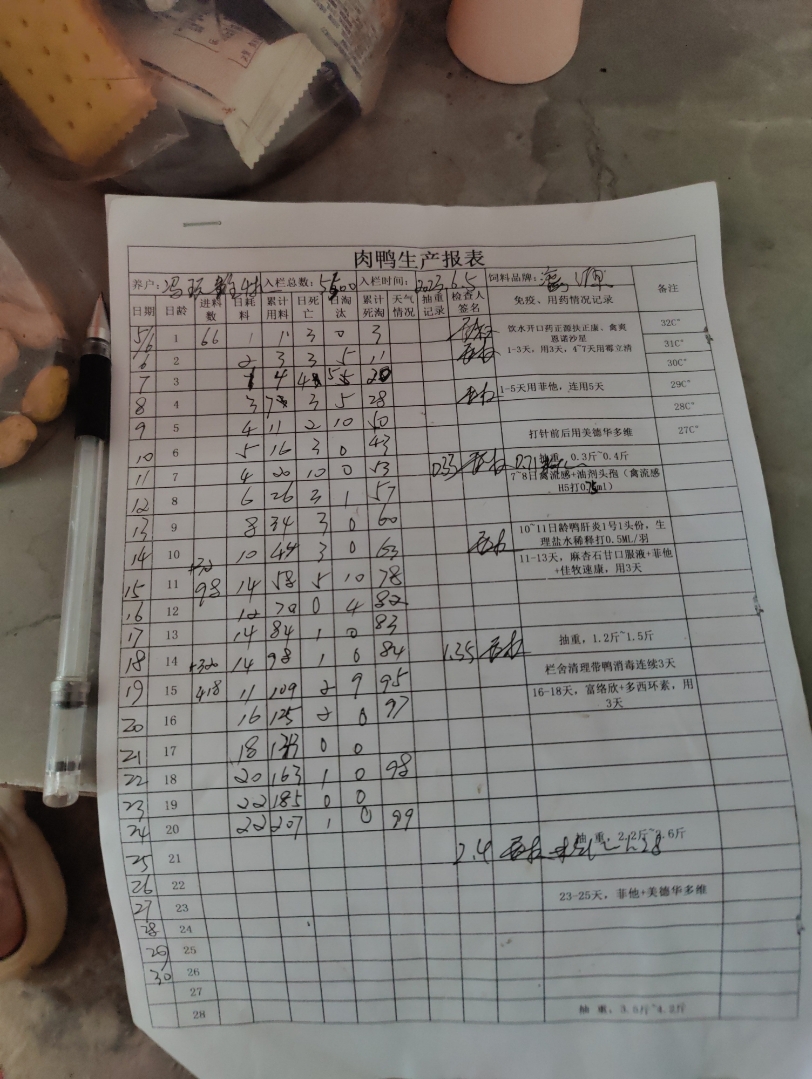 肉鸭生产报表
养户: 冯 入栏总数: 5500 入栏时间: 2023.6.5 饲料品牌:
日期 日龄 进料数 日耗料 累计用料 日死亡 日淘汰 累计死淘 天气情况 抽重记录 检查人签名 免疫、用药情况记录 备注
5/6 1 66 1 1 3 0 3 饮水开口药正源扶正康、禽爽恩诺沙星 32C°
6 2 2 3 3 5 11 1-3天，用3天，4~7天用霉立清 31C°
7 3 4 30C°
8 4 3 7 3 5 28 1-5天用菲他，连用5天 29C°
28C°
9 5 4 11 2 10 打针前后用美德华多维 27C°
10 6 5 16 3 0 43 抽重，0.3斤~0.4斤
11 7 4 20 10 0 53 0.33 7~8日禽流感+油剂头孢（禽流感H5打0.75ml）
12 8 6 26 3 1 57
13 9 8 34 3 0 60 10~11日龄鸭肝炎1号1头份，生理盐水稀释打0.5ML/羽
14 10 +32 10 44 3 0 63
15 11 98 14 58 5 10 78 11-13天，麻杏石甘口服液+菲他+佳牧速康，用3天
16 12 12 70 0 4 82
17 13 14 84 1 0 83 抽重，1.2斤~1.5斤
18 14 +320 14 98 1 0 84 1.35
19 15 418 11 109 2 9 95 栏舍清理带鸭消毒连续3天
20 16 16 125 2 0 97 16-18天，富络欣+多西环素，用3天
21 17 18 0 0
22 18 20 163 1 0 98
23 19 22 185 0 0
24 20 22 207 1 0 99
25 21 2.4 抽重，2.2斤~2.6斤
26 22
27 23 23-25天，菲他+美德华多维
28 24
29 25
30 26
27
28 抽重，3.8斤~4.2斤